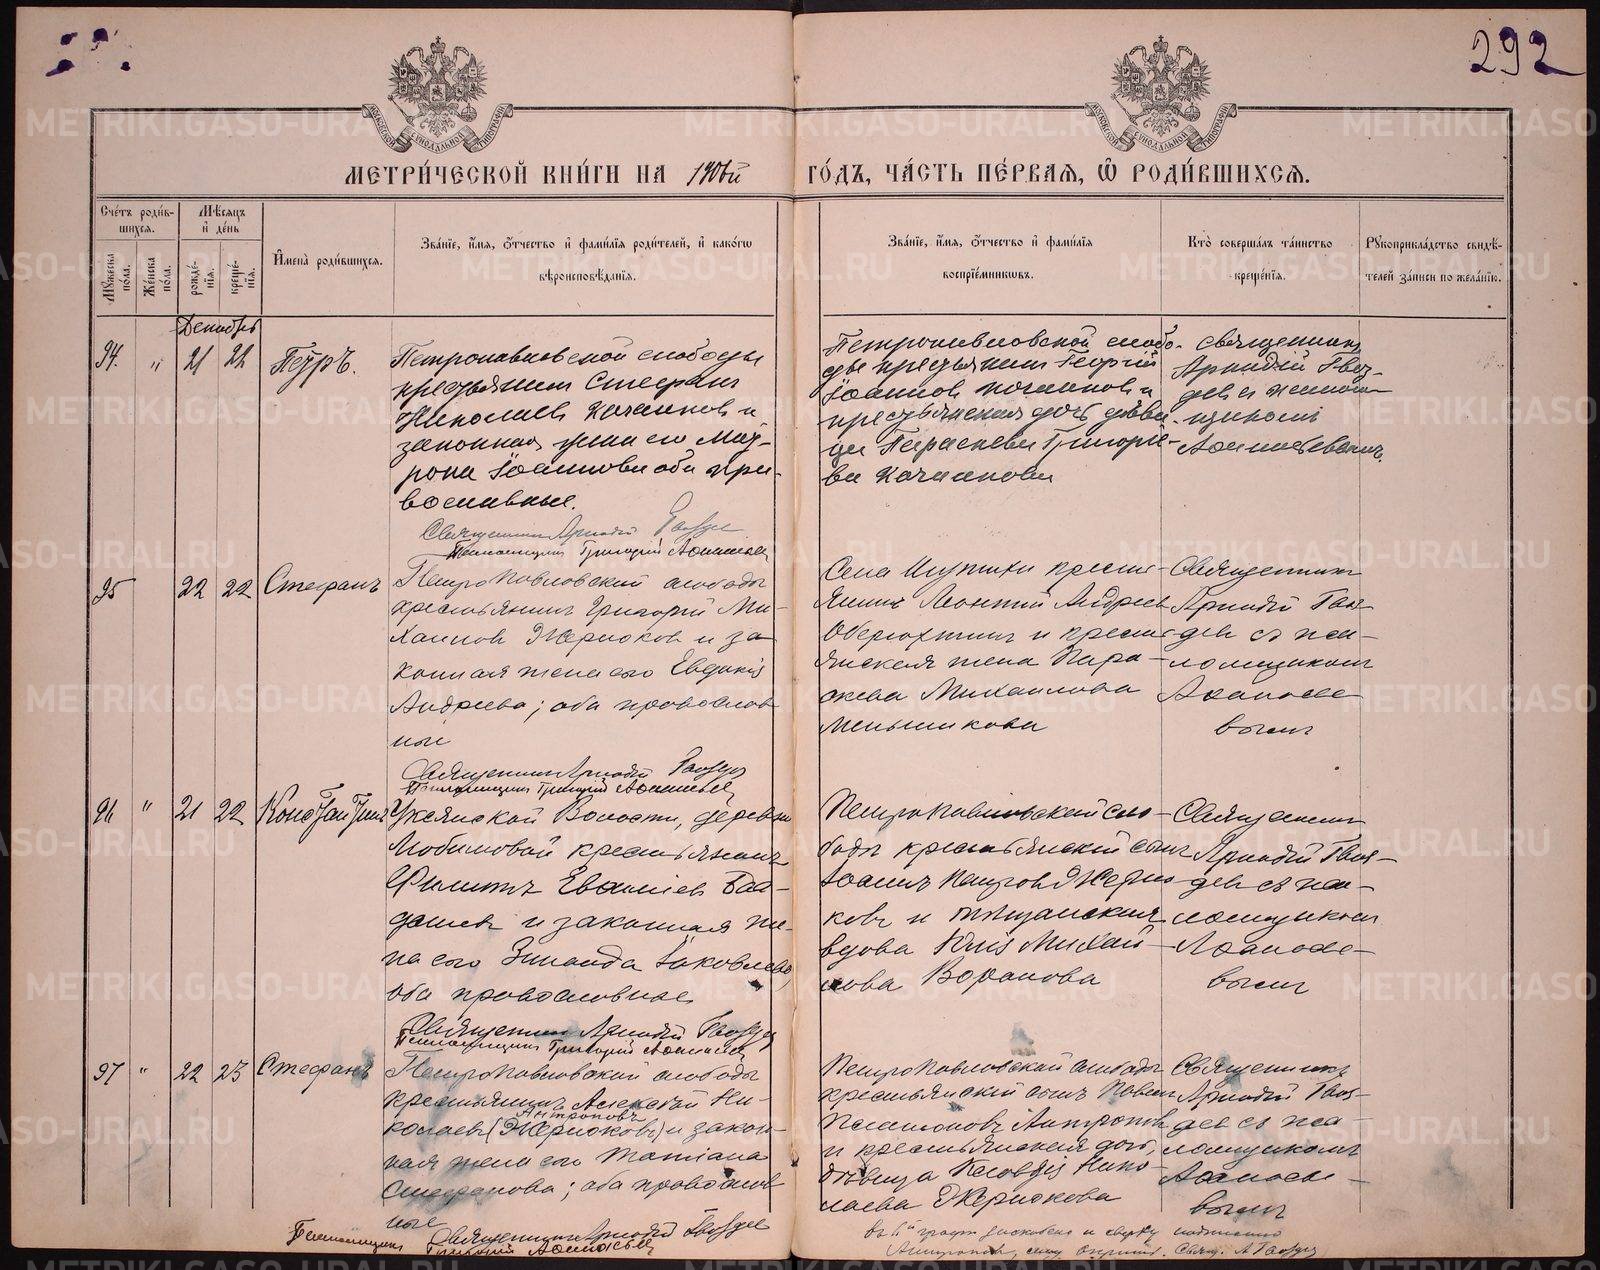 292
МОСКОВСКОЙ СѴНОДАЛЬНОЙ ТИПОГРАФІИ
МОСКОВСКОЙ СѴНОДАЛЬНОЙ ТИПОГРАФІИ
МЕТРИ́ЧЕСКОЙ КНИ́ГИ НА ГО́ДЪ, ЧА́СТЬ ПЕ́РВАЯ, Ѡ РОДИ́ВШИХСЯ.
Сче́тъ роди́в-
шихся.
Му́жеска пола.
Же́нска пола.
Мѣ́сяцъ
и де́нь
рожде́-
нія.
креще́-
нія.
Имена̀ роди́вшихся.
Зва́ніе, и́мя, о́тчество и фами́лія роди́телей, и како́гѡ
вѣроисповѣ́данія.
Зва́ніе, и́мя, о́тчество и фами́лія
воспріе́мниковъ.
Кто̀ соверша́лъ та́инство
креще́нія.
Рукоприкла́дство свидѣ́-
телей за́писи по жела́нію.
Декабрь
94. " 21 22 Петръ.
Петропавловской слободы
крестьянинъ Стефанъ
Николаевъ Качалковъ и
законная жена его Мат-
рона Іоаннова оба пра-
вославные.
Священникъ Аркадій Гвоздев
Псаломщикъ Григорій Афанасьев
Петропавловской слобо-
ды крестьянинъ Георгій
Іоанновъ Качалковъ и
крестьянская дочь дѣви-
ца Параскева Григорье-
ва Качалкова
Священникъ
Аркадій Гвоз-
девъ съ псалом-
щикомъ
Афанасьевымъ.
95 22 22 Стефанъ
Петропавловской слободы
крестьянинъ Григорій Ми-
хаиловъ Жерноковъ и за-
конная жена его Евдокія
Андреева; оба православ
ные
Священникъ Аркадій Гвоздев
Псаломщикъ Григорій Афанасьев
Села крестья-
янинъ Леонтій Андреев
Оберюхтинъ и кресть-
янская жена Пара-
скева Михаилова
Меньшикова
Священникъ
Аркадій Гвоз-
девъ съ пса-
ломщикомъ
Афанасье-
вымъ
96 " 21 22 Константинъ
Уксянской Волости, деревни
Любимовой крестьянинъ
Филиппъ
и законная же-
на его Зинаида Іаковлева,
оба православные
Священникъ Аркадій Гвоздев
Псаломщикъ Григорій Афанасьев
Петропавловской сло-
боды крестьянскій сынъ
Іоаннъ Петровъ Жерно-
ковъ и мѣщанская
вдова Юлія Михай-
лова Воронова
Священникъ
Аркадій Гвоз-
девъ съ пса-
ломщикомъ
Афанасье-
вымъ
97 " 22 23 Стефанъ
Петропавловской слободы
крестьянинъ Алексѣй Ни-
Антроповъ
колаевъ (Жерноковъ) и закон-
ная жена его Татіана
Стефанова; оба православ
ные
Священникъ Аркадій Гвоздев
Псаломщикъ Григорій Афанасьев
Петропавловской слободы
крестьянскій сынъ Павелъ
Антропов
и крестьянская дочь,
дѣвица Нико-
лаева Жернокова
Священникъ
Аркадій Гвоз-
девъ съ пса-
ломщикомъ
Афанасье-
вымъ
въ графѣ и сверху написано
Антроповъ, Свящ. А Гвоздев
METRIKI.GASO-URAL.RU